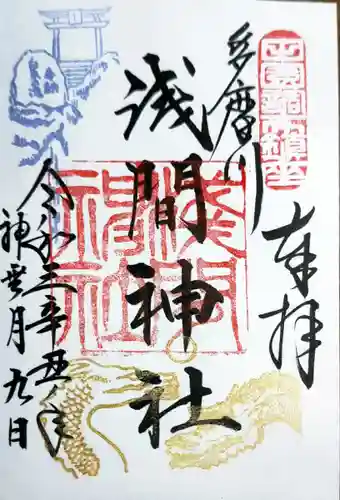 奉拝
多摩川
浅間神社
令和三辛丑年
神無月九日
浅間神社